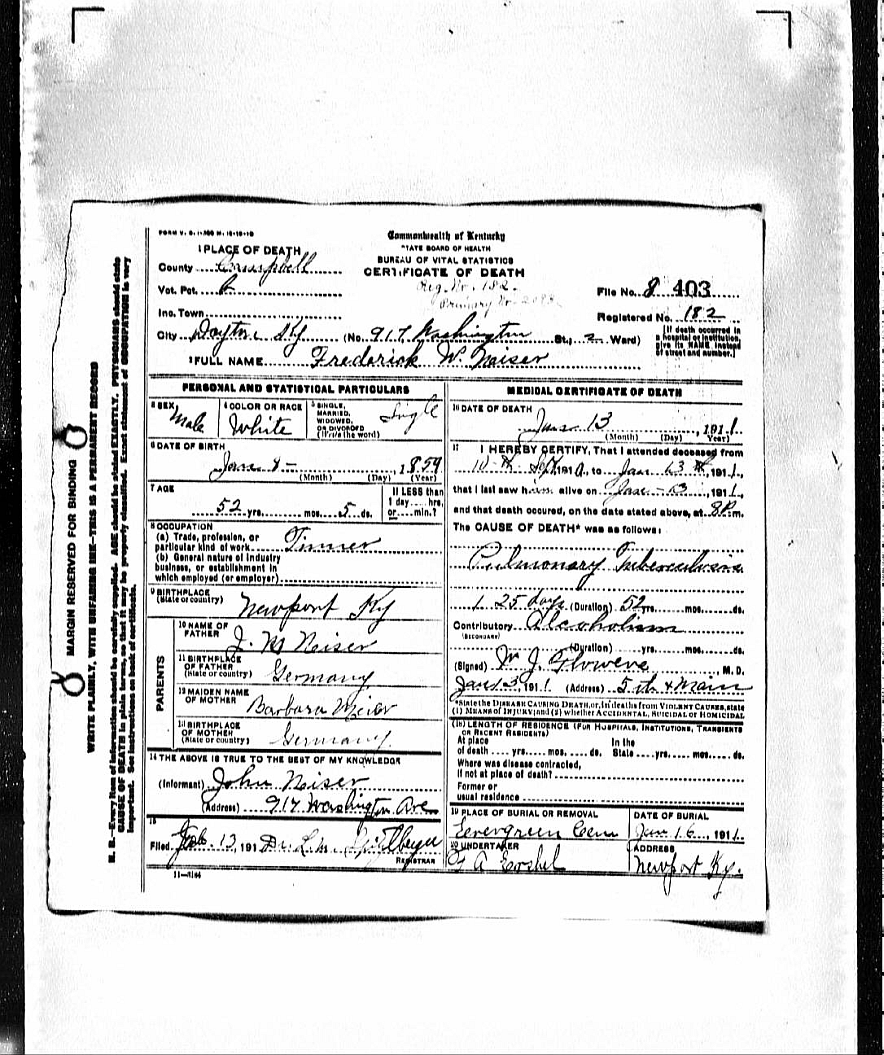 FORM V. S. 1-
Commonwealth of Kentucky
STATE BOARD OF HEALTH
BUREAU OF VITAL STATISTICS
CERTIFICATE OF DEATH
Reg. Nr. 182.
Primary Nr.
1 PLACE OF DEATH
County Campbell
Vot. Pct.
Inc. Town
File No. 8 403
Registered No. 182
City Dayton Ky (No. 917 Washington St., 2 Ward)
[If death occurred in a hospital or institution, give its NAME instead of street and number.]
2 FULL NAME Frederick W. Neiser
PERSONAL AND STATISTICAL PARTICULARS
3 SEX Male
4 COLOR OR RACE White
5 SINGLE, MARRIED, WIDOWED, OR DIVORCED (Write the word) Single
6 DATE OF BIRTH
Jan 8 - 1859
(Month) (Day) (Year)
7 AGE
52 yrs. mos. 5 ds.
If LESS than 1 day hrs. or min.?
8 OCCUPATION
(a) Trade, profession, or particular kind of work Tinner
(b) General nature of industry business, or establishment in which employed (or employer)
9 BIRTHPLACE
(State or country) Newport Ky
PARENTS
10 NAME OF FATHER J. M Neiser
11 BIRTHPLACE OF FATHER (State or country) Germany
12 MAIDEN NAME OF MOTHER Barbara Meier
13 BIRTHPLACE OF MOTHER (State or country) Germany
14 THE ABOVE IS TRUE TO THE BEST OF MY KNOWLEDGE
(Informant) John Neiser
(Address) 917 Washington Ave
15
Filed 13, 191
REGISTRAR
11-3184
MEDICAL CERTIFICATE OF DEATH
16 DATE OF DEATH
Jan 13, 1911
(Month) (Day) Year)
17 I HEREBY CERTIFY, That I attended deceased from
10 th Sept 1910, to Jan 13 th, 1911,
that I last saw him alive on Jan - 13, 1911,
and that death occured, on the date stated above, at 8P.m.
The CAUSE OF DEATH* was as follows:
Pulmonary Tuberculosis
1 25 days (Duration) 52 yrs. mos. ds.
Contributory Alcoholism
(SECONDARY)
(Duration) yrs. mos. ds.
(Signed) W J. M. D.
Jan 13, 1911 (Address) 5th & Main
*State the DISEASE CAUSING DEATH, or, in deaths from VIOLENT CAUSES, state
(1) MEANS OF INJURY; and (2) whether ACCIDENTAL, SUICIDAL or HOMICIDAL
(18) LENGTH OF RESIDENCE (FOR HOSPITALS, INSTITUTIONS, TRANSIENTS OR RECENT RESIDENTS)
At place of death yrs. mos. ds. In the State yrs. mos. ds.
Where was disease contracted, if not at place of death?
Former or usual residence
19 PLACE OF BURIAL OR REMOVAL
Evergreen Cem
DATE OF BURIAL
Jan 16, 1911.
20 UNDERTAKER
ADDRESS
Newport Ky.
MARGIN RESERVED FOR BINDING
WRITE PLAINLY, WITH UNFADING INK—THIS IS A PERMANENT RECORD
N. B.—Every item of information should be carefully supplied. AGE should be stated EXACTLY. PHYSICIANS should state
CAUSE OF DEATH in plain terms, so that it may be properly classified. Exact statement of OCCUPATION is very
important. See instructions on back of certificate.